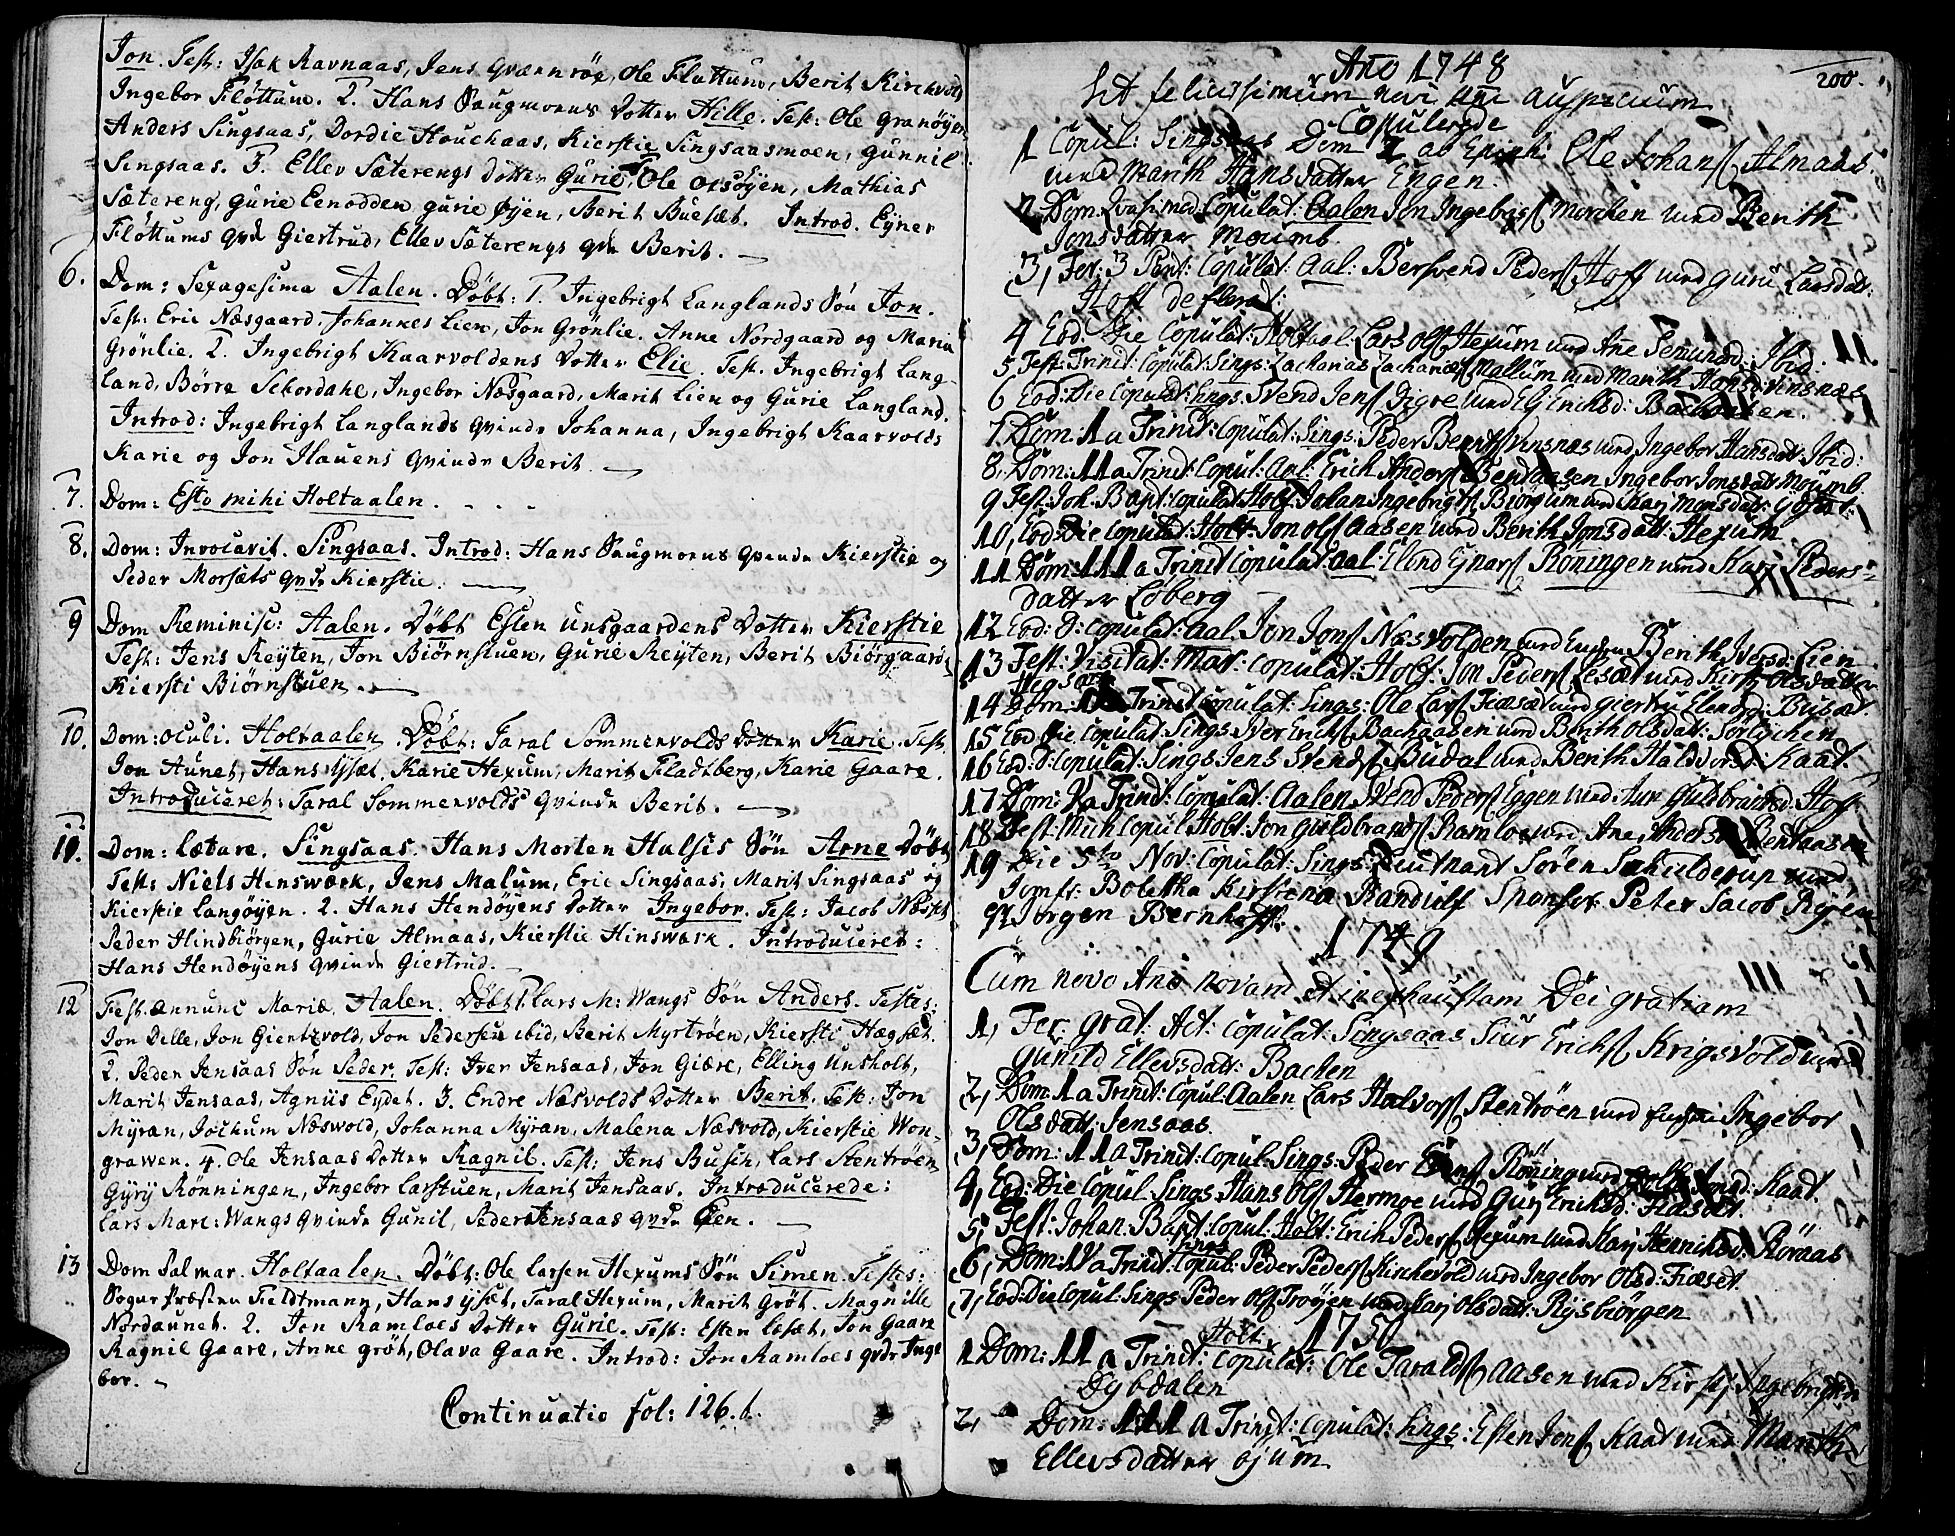 Jon. Test: Isak Ravnaas, Jens Qværnrøe, Ole Fløttum, Berit Kirchvold
Ingebor Fløttum. 2. Hans Haugmoens Dotter Hille. Test: Ole Granøyen
Anders Singsaas, Dordie Houchaas, Kierstie Singsaasmoen, Gunnil
Singsaas. 3. Ellev Sæterengs Dotter Gurie, Ole Orsøyen, Mathias
Sætereng, Gurie Eenodden, Gurie Øyen, Berit Buesæt. Introd. Eyner
Fløttums Qvd Giertrud, Ellev Sæterengs Qv: Berit.
6. Dom: Sexagesima Aalen. Døbt: 1. Ingebrigt Langlands Søn Jon.
Test: Eric Næsgaard, Johannes Lien, Jon Grønlie, Anne Nordgaard og Maria
Grønlie. 2. Ingebrigt Kaarvoldens Dotter Elie. Test. Ingebrigt Lang-
land, Børre Schordahl, Ingebor Næsgaard, Marit Lien og Gurie Langland.
Introd: Ingebrigt Langlands Qvinde Johanna, Ingebrigt Kaarvolds
Karie og Jon Hauens Qvinde Berit.
7. Dom: Esto mihi Holtaalen.
8. Dom: Invocavit. Singsaas. Introd: Hans Haugmoens Qvinde Kierstie og
Peder Morsæts Qvde Kierstie.
9 Dom Reminisc: Aalen. Døbt Esten Unsgaardens Dotter Kierstie
Test: Jens Reyten, Jon Biørnstuen, Gurie Reyten, Berit Biørgaard,
Kiersti Biørnstuen.
10. Dom: Oculi. Holtaalen. Døbt: Taral Sommervolds Dotter Karie. Test.
Jon Aunet, Hans Ysæt, Karie Hexum, Marit Fladtberg, Karie Gaare.
Introduceret: Taral Sommervolds Qvinde Berit.
11. Dom: Lætare. Singsaas. Hans Morten Halsis Søn Arne Døbt
Test: Niels Hinswærk, Jens Malum, Eric Singsaas, Marit Singsaas og
Kierstie Langøyen. 2. Hans Hendøyens Dotter Ingebor. Test: Jacob
Peder Hindbiørgen, Gurie Almaas, Kierstie Hinswærk. Introduceret:
Hans Hendøyens Qvinde Giertrud.
12 Fest. Annunc Mariæ. Aalen. Døbt 1. Lars M: Wangs Søn Anders. Testes:
Jon Dille, Jon Gientzvold, Jon Pedersen ibid, Berit Myrtrøen, Kiersti Hægsæt.
2. Peder Jensaas Søn Peder. Test: Iver Jensaas, Jon Giære, Elling Unsholt,
Marit Jensaas, Agniis Eydet. 3. Endre Næsvolds Dotter Berit. Test: Jon
Myran, Jochum Næswold, Johanna Myran, Malena Næsvold, Kierstie Won-
grawen. 4. Ole Jensaas Dotter Ragnil. Test: Jens Busch, Lars Stentrøen
Gyrij Rønningen, Ingebor Larstuen, Marit Jensaas. Introducerede:
Lars Mare: Wangs Qvinde Gunil, Peder Jensaas Qvde Elen.
13 Dom Palmar. Holtaalen. Døbt: Ole Larsen Hexums Søn Simen. Testes:
Sogne Præsten Feldtmann, Hans Ysæt, Taral Hexum, Marit Grøt. Magnille
Nordaunet. 2. Jon Ramloes Dotter Gurie. Test: Esten Løsæt, Jon Gaare
Ragnil Gaare, Anne Grøt, Olava Gaare. Introd: Jon Ramloes Qvde Inge
bor.
Continuatio fol: 126. b.
200.
Año 1748
Sit felicissimum novi auspicium
Copulerede
1 Copul: Singsaas Dom 2 ab Epiph: Ole Johans Almaas
med Marith Hansdatter Engen.
2 Dom. Qvasimod Copulat: Aalen Jon Ingebrs Morchen med Berith
Jonsdatter Moumb.
3, Fer: 3 Pent: Copulat: Aal: Bersvend Peders Hoff med Guru Larsdat:
Hoff deflorat:
4 Eod: Die Copulat: Holtaal: Lars Ols Hexum med Ane Semundsd: Ibid.
5 Fest: Trinit: Copulat: Sings: Zacharias Zacharias Mallum med Marith Hansd: Vinsnæs
6 Eod: Die Copulat: Sings: Svend Jens Digre med Eli Erichsd: Bachaasen.
7, Dom: 1 a Trinit: Copulat: Sings: Peder Berents Vinsnæs med Ingebor Hansdat: Ibid:
8, Dom: 11 a Trinit: Copul: Aal: Erich Anders Bendaasen Ingebor Jonsdat: Moumb.
9 Fest: Joh: Bapt: Copulat: Holt: Johan Ingebrigts Biørgum med Kari Monsdat:
10, Eod: Die Copulat: Holt: Jon Ols Aasen med Berith Jonsdatt: Hexum
11 Dom: 111 a Trinit Copulat Aal: Elend Ejnars Røningen med Kari Peders-
datter Løberg
12 Eod: D: Copulat: Aal Jon Jons Næsvolden med Berith Iversd: Lien
13 Fest: Visitat: Mar: Copulat: Holt: Jon Peders Løsæt med Kirst: Olsdatter
14 Dom: Trinit Copulat: Sings: Ole Lars Fiæset med Giertru Elendsd: Busæt.
15 Eod Die Copulat: Sings Iver Erichs Bachaasen med Berith Olsdatt: Sørlychen
16 Eod: D: Copulat: Sings Jens Svends Budal med Berith Haldvorsd: Kaat.
17 Dom: V a Trinit: Copulat: Aalen Svend Peders Eggen med Ane Guldbrandsd: Hoff.
18 Fest: Mich Copul Holt: Jon Guldbrands Ramloe med Ane Andersd: Bendaasen
19 Die 5to Nov: Copulat: Sings: Leutnant Søren Schielderup med
Jomfr: Boletha Kirstena Randulf Sponsor: Peter Jacob
et Jørgen Bernhoft.
1749
Cum novo Año novam et inexhaustam Dei gratiam
1, Fer. Grat: Act: Copulat: Singsaas Siur Erichs Krigsvold med
Gunild Ellevsdatt: Bachen
2, Dom: 1 a Trinit: Copul: Aalen Lars Halvors Stentrøen med Ingebor
Olsdatt: Jensaas.
3, Dom: 11 a Trinit: Copul: Sings: Peder Røning med Kaat
4, Eod: Die Copul: Sings: Hans Ols Hermoe med Gurj Erichsd: Fiæset.
5, Fest: Johan: Bapt: Copul: Holt: Erich Peders Hexum med Marj Henrichsd: Rømaas
6, Dom: IV a Trinit: Sings Copul: Peder Peders Kirchevold med Ingebor Olsd: Fiæset.
7, Eod: Die Copul: Sings Peder Ols Trøjen med Karj Olsdatt: Rijsbørgen
1750
1 Dom: 11 a Trinit: Holt: Copulat: Ole Taralds Aasen med Kirstj Ingebrigtsd:
Dybdalen
2, Dom: 111 a Trinit: Copulat: Sings: Esten Jons Kaat med Marith
Ellevsdatter Øjum